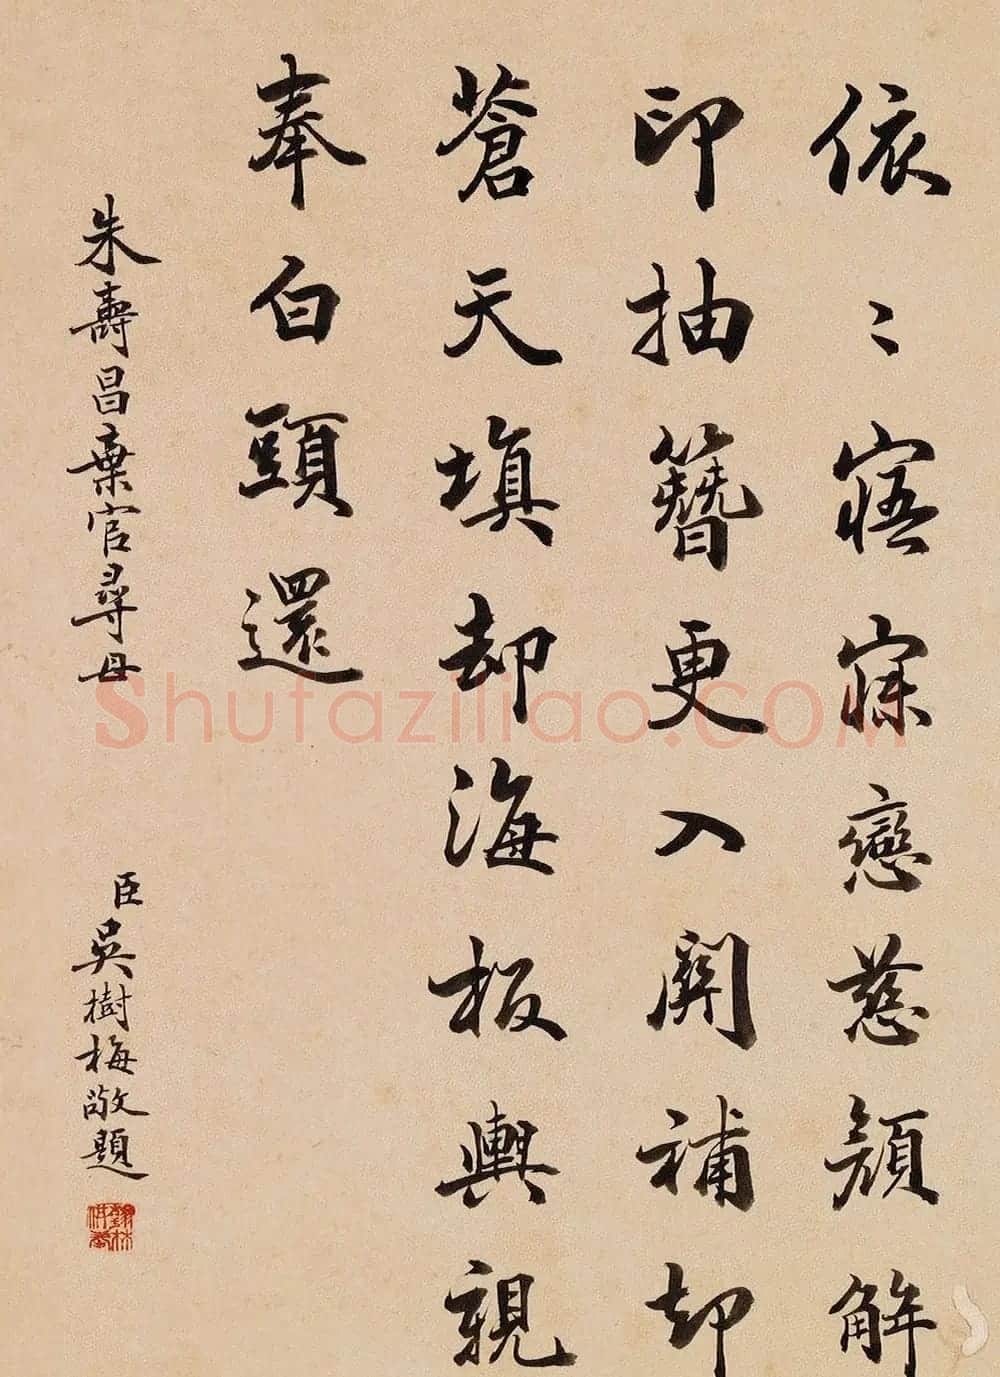 依〻寤寐戀慈顏解
印抽簪更入關補却
蒼天填却海板輿親
奉白頭還
朱壽昌棄官尋母
臣吳樹梅敬題
Shufaziliao.COM